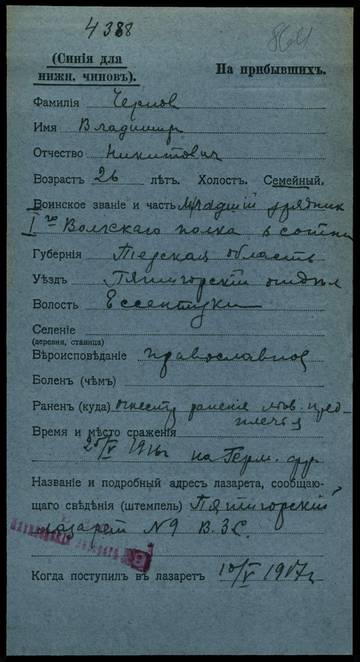 4388
(Синія для
нижн. чиновъ).
На прибывшихъ.
Фамилія Чернов
Имя Владимир
Отчество Никитович
Возрастъ 26 лѣтъ. Холост. Семейный.
Воинское званіе и часть Младший урядник
I го Волгскаго полка 6 сотни
Губернія Терская область
Уѣздъ Пятигорский отдел
Волость Ессентуки
Селеніе
(деревня, станица)
Вѣроисповѣданіе православное
Болен (чѣмъ)
Раненъ (куда) огнестр ранения лев. пред-
плечья
Время и мѣсто сраженія
25/V 1916 г на Герм. фр.
Названіе и подробный адресъ лазарета, сообщаю-
щаго свѣдѣнія (штемпель) Пятигорский
лазарет №9 В.З.С.
Когда поступил въ лазаретъ 10/V 1917 г